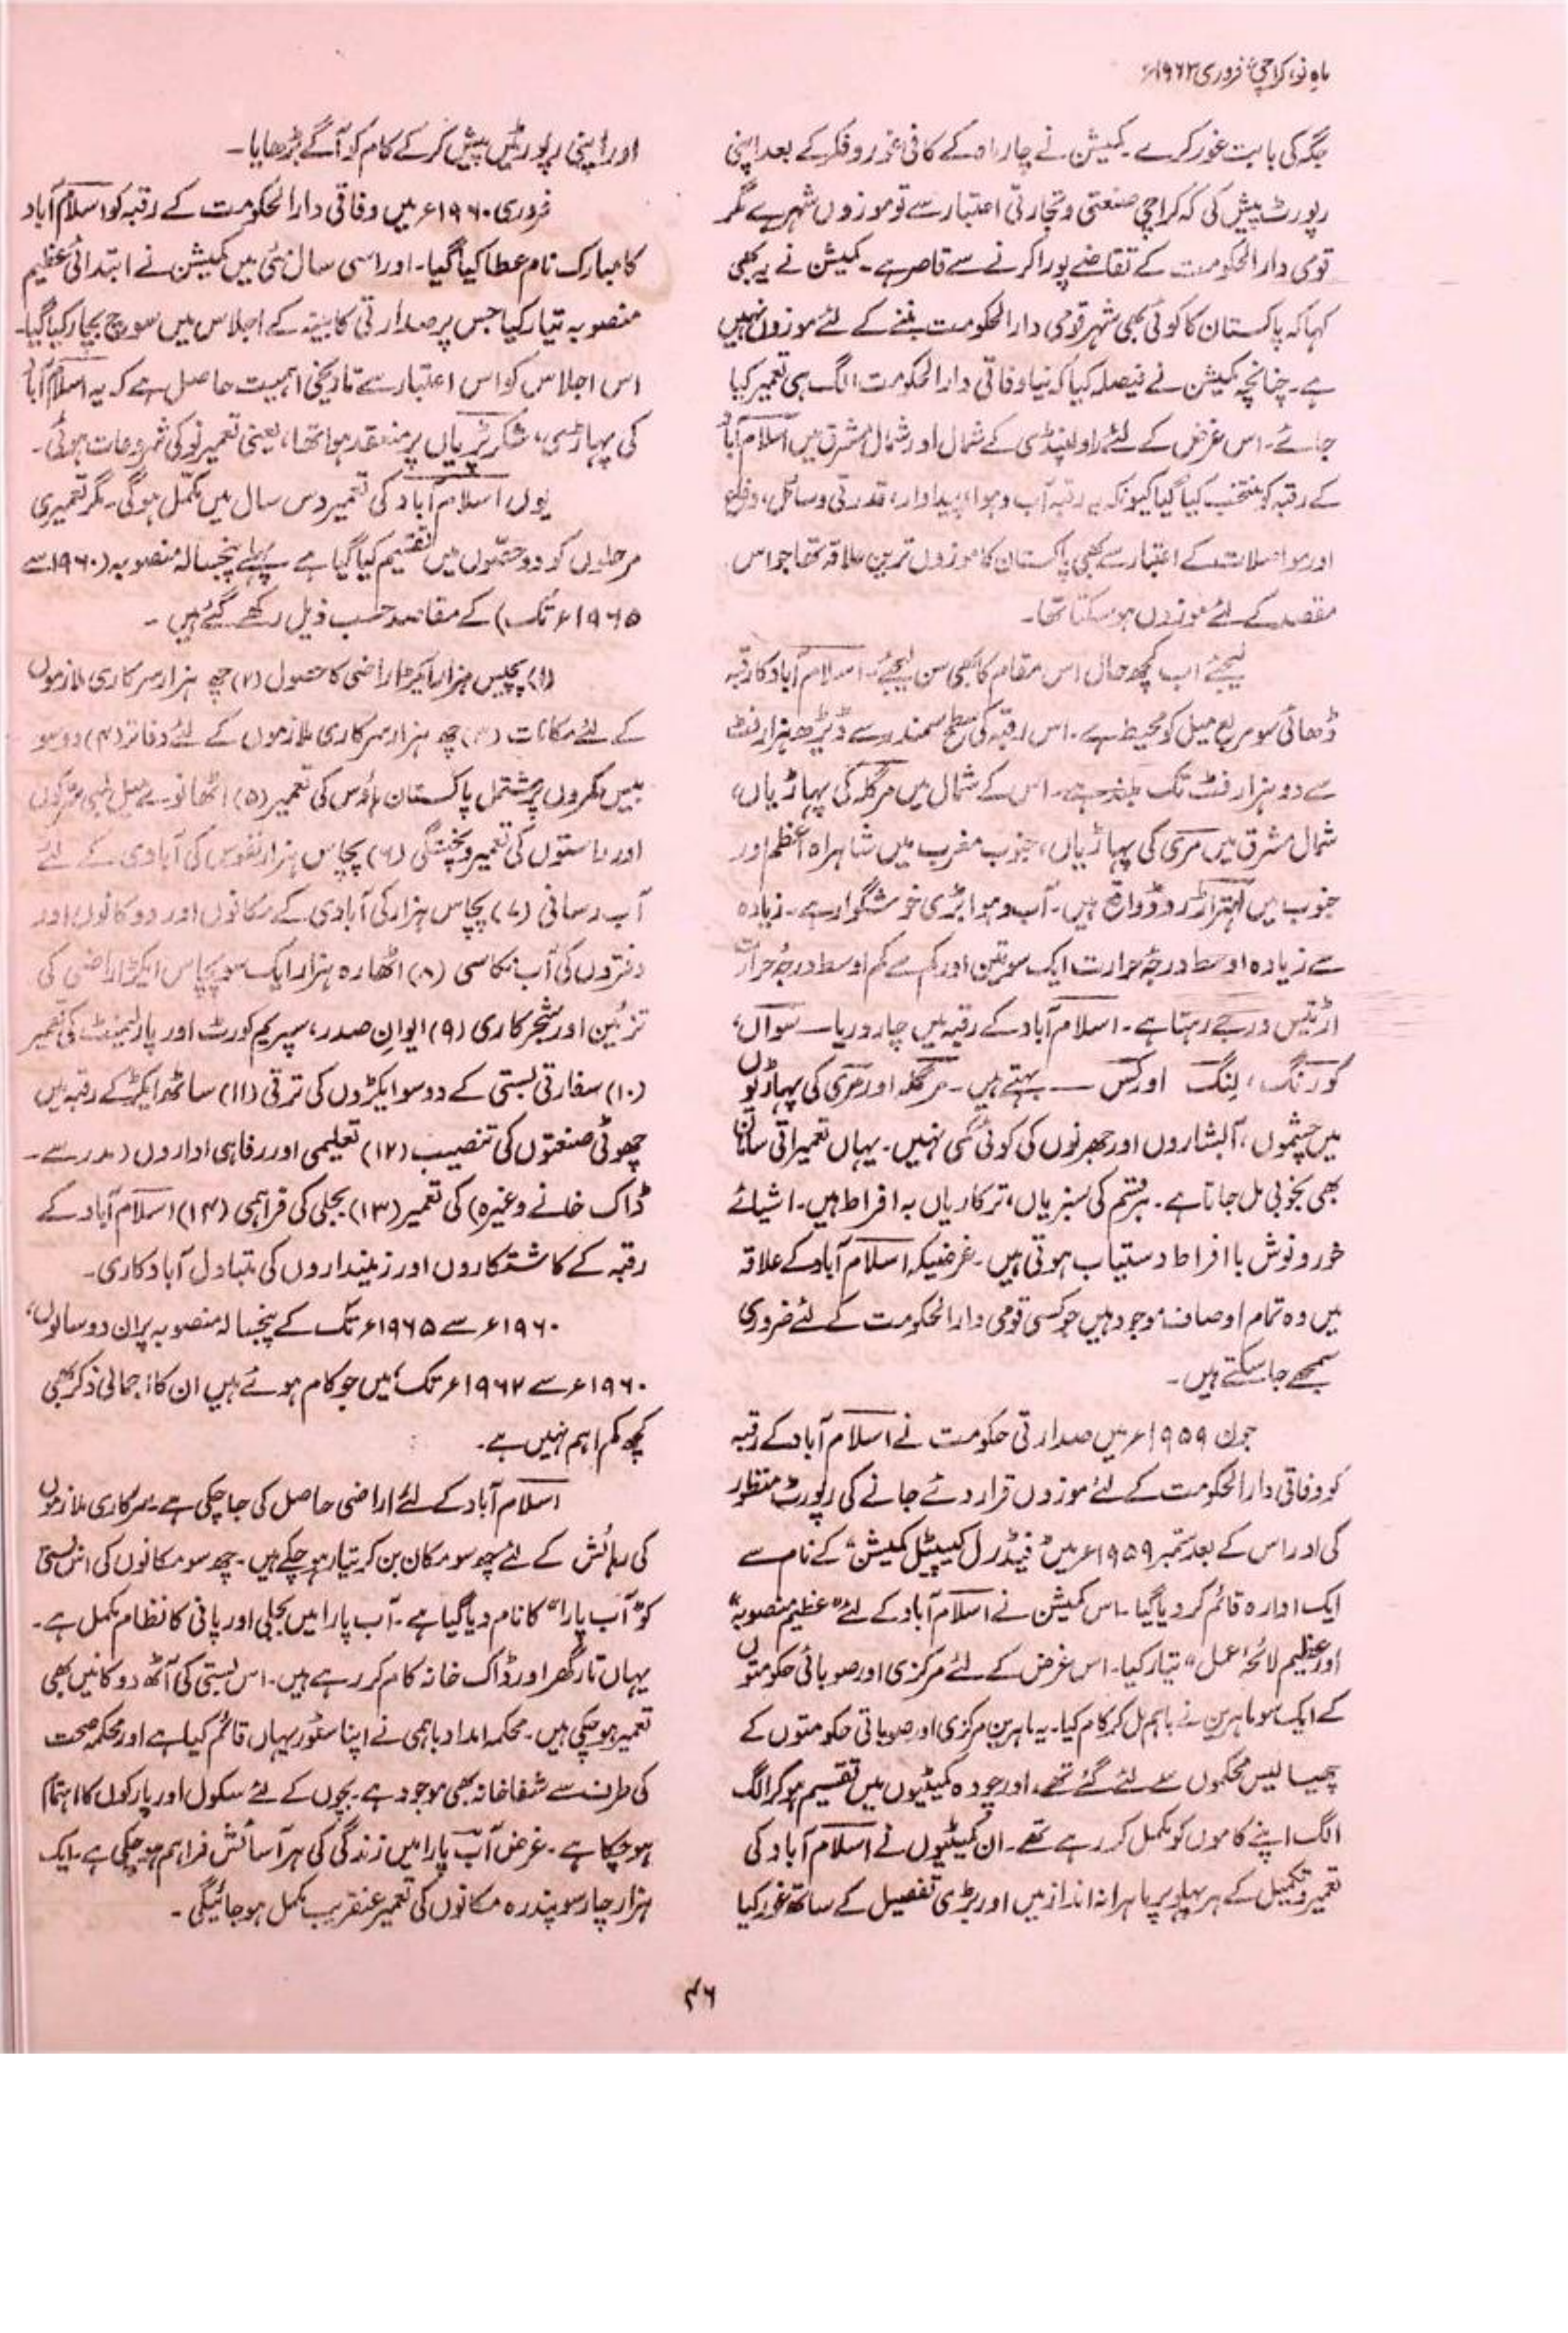 ماہِ نو، کراچی، فروری ۱۹۶۳ء
جگہ کی بابت غور کرے۔ کمیشن نے چار ماہ کے کافی غور و فکر کے بعد اپنی
رپورٹ پیش کی کہ کراچی صنعتی و تجارتی اعتبار سے تو موزوں شہر ہے مگر
قومی دارالحکومت کے تقاضے پورا کرنے سے قاصر ہے۔ کمیشن نے یہ بھی
کہا کہ پاکستان کا کوئی بھی شہر قومی دارالحکومت بننے کے لئے موزوں نہیں
ہے۔ چنانچہ کمیشن نے فیصلہ کیا کہ نیا وفاقی دارالحکومت الگ ہی تعمیر کیا
جائے۔ اس غرض کے لئے راولپنڈی کے شمال اور شمال مشرق میں اسلام آباد
کے رقبہ کو منتخب کیا گیا کیونکہ یہ رقبہ آب و ہوا، پیداوار، قدرتی وسائل، دفاع
اور مواصلات کے اعتبار سے بھی پاکستان کا موزوں ترین علاقہ تھا جو اس
مقصد کے لئے موزوں ہو سکتا تھا۔
لیجئے اب کچھ حال اس مقام کا بھی سن لیجئے۔ اسلام آباد کا رقبہ
ڈھائی سو مربع میل کو محیط ہے۔ اس رقبہ کی سطح سمندر سے ڈیڑھ ہزار فٹ
سے دو ہزار فٹ تک بلند ہے۔ اس کے شمال میں مرگلہ کی پہاڑیاں،
شمال مشرق میں مری کی پہاڑیاں، جنوب مغرب میں شاہراہ اعظم اور
جنوب میں لہتراڑ روڈ واقع ہیں۔ آب و ہوا بڑی خوشگوار ہے۔ زیادہ
سے زیادہ اوسط درجۂ حرارت ایک سو تین اور کم سے کم اوسط درجۂ حرارت
اڑتیس درجے رہتا ہے۔ اسلام آباد کے رقبہ میں چار دریا — سوآں،
کورنگ، لِنگ اور کس — بہتے ہیں۔ مرگلہ اور مری کی پہاڑیوں
میں چشموں، آبشاروں اور جھرنوں کی کوئی کمی نہیں۔ یہاں تعمیراتی سامان
بھی بخوبی مل جاتا ہے۔ ہر قسم کی سبزیاں، ترکاریاں بہ افراط ہیں۔ اشیائے
خورونوش باافراط دستیاب ہوتی ہیں۔ غرضیکہ اسلام آباد کے علاقہ
میں وہ تمام اوصاف موجود ہیں جو کسی قومی دارالحکومت کے لئے ضروری
سمجھے جا سکتے ہیں۔
جون ۱۹۵۹ء میں صدارتی حکومت نے اسلام آباد کے رقبہ
کو وفاقی دارالحکومت کے لئے موزوں قرار دئے جانے کی رپورٹ منظور
کی اور اس کے بعد ستمبر ۱۹۵۹ء میں "فیڈرل کیپیٹل کمیشن" کے نام سے
ایک ادارہ قائم کر دیا گیا۔ اس کمیشن نے اسلام آباد کے لئے "عظیم منصوبہ"
اور "عظیم لائحۂ عمل" تیار کیا۔ اس غرض کے لئے مرکزی اور صوبائی حکومتوں
کے ایک سو ماہرین نے باہم مل کر کام کیا۔ یہ ماہرین مرکزی اور صوبائی حکومتوں کے
چھیالیس محکموں سے لئے گئے تھے، اور چودہ کمیٹیوں میں تقسیم ہو کر الگ
الگ اپنے کاموں کو مکمل کر رہے تھے۔ ان کمیٹیوں نے اسلام آباد کی
تعمیر و تکمیل کے ہر پہلو پر ماہرانہ انداز میں اور بڑی تفصیل کے ساتھ غور کیا
اور اپنی رپورٹیں پیش کر کے کام کو آگے بڑھایا۔
فروری ۱۹۶۰ء میں وفاقی دارالحکومت کے رقبہ کو اسلام آباد
کا مبارک نام عطا کیا گیا۔ اور اسی سال مئی میں کمیشن نے ابتدائی عظیم
منصوبہ تیار کیا جس پر صدارتی کابینہ کے اجلاس میں سوچ بچار کیا گیا۔
اس اجلاس کو اس اعتبار سے تاریخی اہمیت حاصل ہے کہ یہ اسلام آباد
کی پہاڑی، شکر پڑیاں پر منعقد ہوا تھا، یعنی تعمیرِ نو کی شروعات ہوئی۔
یوں اسلام آباد کی تعمیر دس سال میں مکمل ہوگی۔ مگر تعمیری
مرحلوں کو دو حصّوں میں تقسیم کیا گیا ہے پہلے پنجسالہ منصوبہ (۱۹۶۰ء سے
۱۹۶۵ء تک) کے مقاصد حسب ذیل رکھے گئے ہیں۔
(۱) پچیس ہزار ایکڑ اراضی کا حصول (۲) چھ ہزار سرکاری ملازموں
کے لئے مکانات (۳) چھ ہزار سرکاری ملازموں کے لئے دفاتر (۴) دو سو
بیس کمروں پر مشتمل پاکستان ہاؤس کی تعمیر (۵) اٹھانوے میل لمبی سڑکوں
اور راستوں کی تعمیر و پختگی (۶) پچاس ہزار نفوس کی آبادی کے لئے
آب رسانی (۷) پچاس ہزار کی آبادی کے مکانوں اور دوکانوں اور
دفتروں کی آب نکاسی (۸) اٹھارہ ہزار ایک سو پچاس ایکڑ اراضی کی
تزئین اور شجر کاری (۹) ایوانِ صدر، سپریم کورٹ اور پارلیمنٹ کی تعمیر
(۱۰) سفارتی بستی کے دو سو ایکڑوں کی ترقی (۱۱) ساٹھ ایکڑ کے رقبہ میں
چھوٹی صنعتوں کی تنصیب (۱۲) تعلیمی اور رفاہی اداروں (مدرسے۔
ڈاک خانے وغیرہ) کی تعمیر (۱۳) بجلی کی فراہمی (۱۴) اسلام آباد کے
رقبہ کے کاشتکاروں اور زمینداروں کی متبادل آباد کاری۔
۱۹۶۰ء سے ۱۹۶۵ء تک کے پنجسالہ منصوبہ پر ان دو سالوں،
۱۹۶۰ء سے ۱۹۶۲ء تک، میں جو کام ہوئے ہیں ان کا اجمالی ذکر بھی
کچھ کم اہم نہیں ہے۔
اسلام آباد کے لئے اراضی حاصل کی جا چکی ہے۔ سرکاری ملازموں
کی رہائش کے لئے چھ سو مکان بن کر تیار ہو چکے ہیں۔ چھ سو مکانوں کی اس بستی
کو "آب پارا" کا نام دیا گیا ہے۔ آب پارا میں بجلی اور پانی کا نظام مکمل ہے۔
یہاں تار گھر اور ڈاک خانہ کام کر رہے ہیں۔ اس بستی کی آٹھ دوکانیں بھی
تعمیر ہو چکی ہیں۔ محکمہ امداد باہمی نے اپنا سٹور یہاں قائم کیا ہے اور محکمہ صحت
کی طرف سے شفاخانہ بھی موجود ہے۔ بچوں کے لئے سکول اور پارکوں کا اہتمام
ہو چکا ہے۔ غرض آب پارا میں زندگی کی ہر آسائش فراہم ہو چکی ہے۔ ایک
ہزار چار سو پندرہ مکانوں کی تعمیر عنقریب مکمل ہو جائیگی۔
۴۶